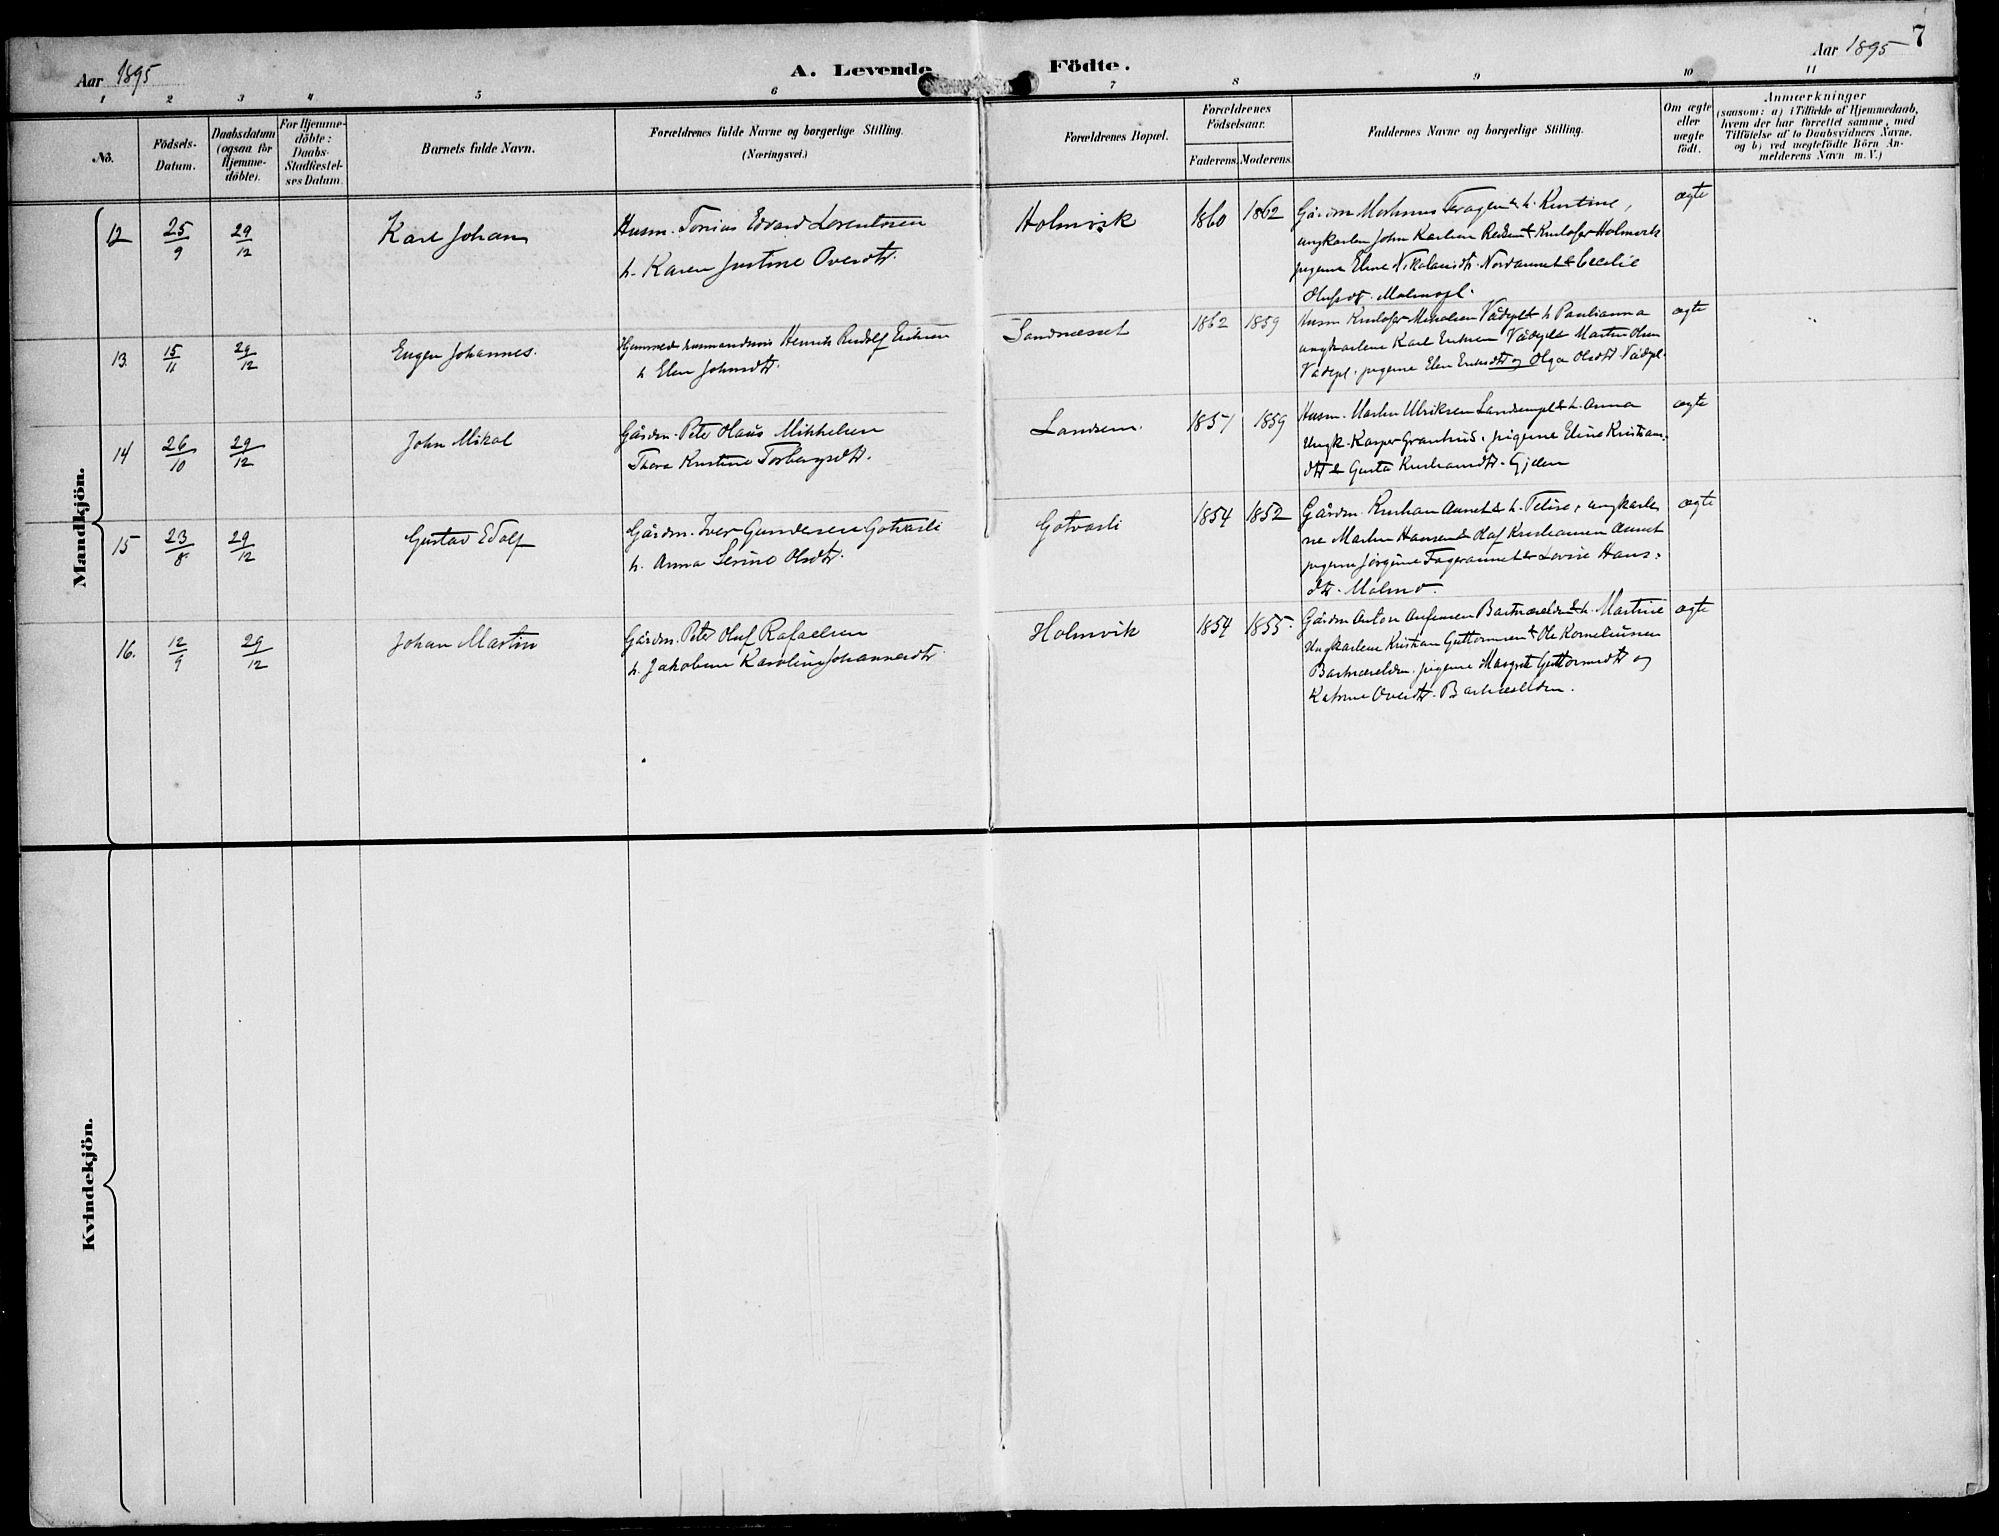 7
Aar 1895
A. Levende Födte.
Aar 1895
1 2 3 4 5 6 7 8 9 10 11
No.
Födsels-
Datum.
Daabsdatum
(ogsaa for
Hjemme-
döbte).
For Hjemme-
döbte:
Daabs-
Stadfæstel-
ses Datum.
Barnets fulde Navn.
Forældrenes fulde Navne og borgerlige Stilling.
(Næringsvei.)
Forældrenes Bopæl.
Forældrenes
Födselsaar.
Faderens. Moderens.
Faddernes Navne og borgerlige Stilling.
Om ægte
eller
uægte
födt.
Anmærkninger
(saasom: a) i Tilfælde af Hjemmedaab,
hvem der har forrettet samme, med
Tilföielse af to Daabsvidners Navne.
og b) ved uægtefödte Börn An-
melderens Navn m. V.)
Mandkjön.
12 25/9 29/12 Karl Johan
Husm. Tonius Edvard Lorentsen
h. Karen Justine Oversdtr.
Holmvik 1860 1862
Gårdm h. Kristine,
ungkarlen John Karlsen & Kristofer Holmvik
pigerne Eline Nikolaisdtr. Nordaunet & Cecelie
Olufsdtr. Malmopl.
ægte
13. 15/11 29/12 Eugen Johannes.
Henrik Rudolf Eriksen
h Elen Johnsdtr.
Sandnesset 1862 1859
Husm Kristofer Mikalsen h Paulianna
ungkarlene Karl Eriksen Martin Olsen
pigerne Elen Eriksdtr og Olga Olsdtr
ægte
14 26/10 29/12 John Mikal
Gårdm. Peter Olaus Mikkelsen
Thora Kristine Torbergsdtr.
Landsem. 1857 1859
Husm. Martin Ulriksen Landsempl & h. Anna
Ungk. Kasper pigerne Eline Kristians-
dtr & Gusta Kristiansdtr.
ægte
15 23/8 29/12 Gustav Edolf
Gårdm. Iver Gundersen Gotvasli
h. Anna Serine Olsdtr.
Gotvasli 1854 1852
Gårdm. Kristian Aunet & h. ungkarle
ne Martin Hansen & Olaf Kristiansen Aunet
pigerne Jørgine Fageraunet & Lovise Hans-
dtr. Malmo.
ægte
16. 12/9 29/12 Johan Martin
Gårdm. Peter Oluf Rafaelsen
h. Jakobine Karoline Johannesdtr.
Holmvik 1854 1855.
Gårdm Anton h. Martine
Ungkarlene Kristian Guttormsen & Ole Korneliussen
pigerne Margrete Guttormsdtr og
Katrine Oversdtr.
ægte
Kvindekjön.